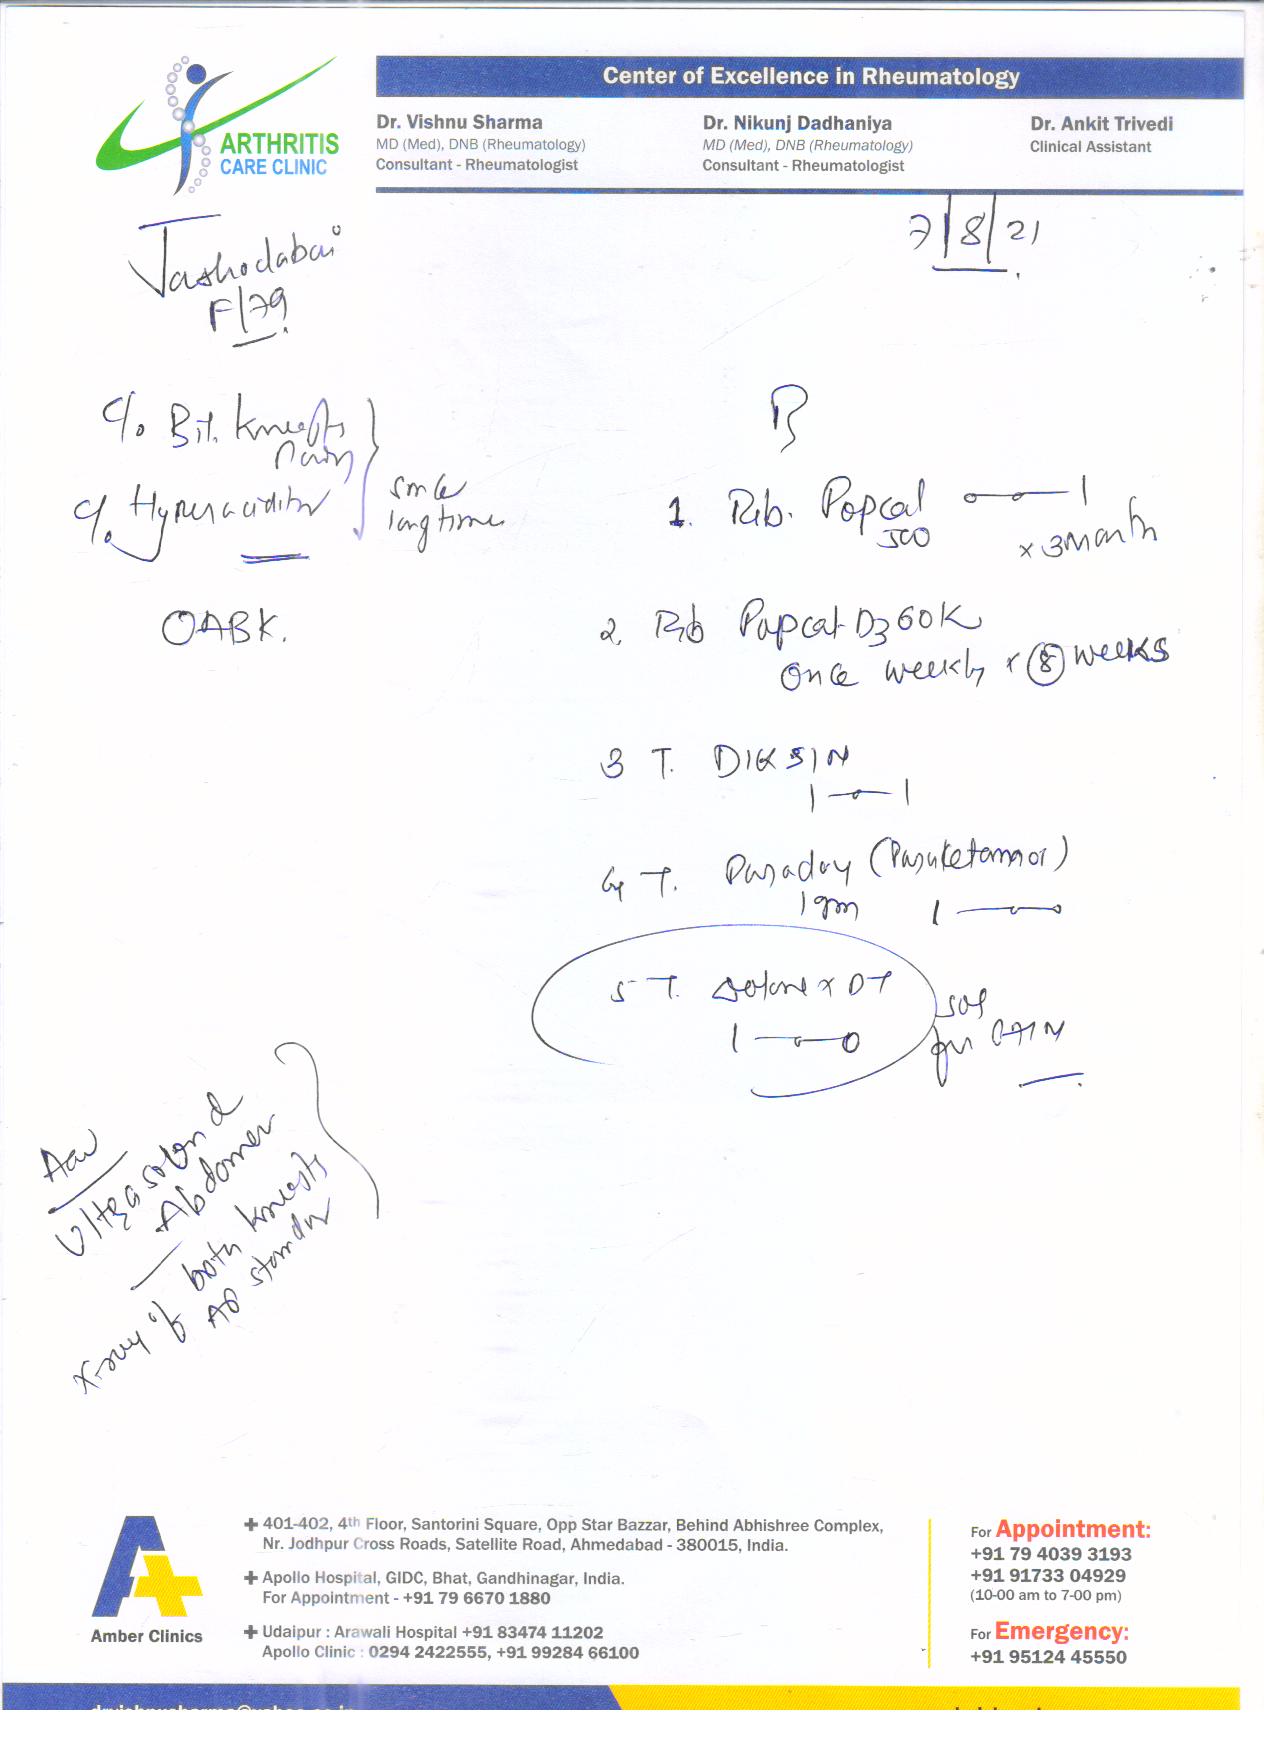 Center of Excellence in Rheumatology
ARTHRITIS
CARE CLINIC
Dr. Vishnu Sharma
MD (Med), DNB (Rheumatology)
Consultant - Rheumatologist
Dr. Nikunj Dadhaniya
MD (Med), DNB (Rheumatology)
Consultant - Rheumatologist
Dr. Ankit Trivedi
Clinical Assistant
7/8/21
Jashodabai
F/79
c/o Bit. knee jts
Pain
c/o Hyperacidity
since
long time
OABK.
1. Rb. Popcal
500
x 3 Month
2. Rb Popcal D3 60K
Once weekly x 8 weeks
3 T. DIKSIN
1-0-1
4 T.
1gm
5 T. DT
1-0-0
SOS
for PAIN
Adv
Ultrasound
Abdomen
X-ray of both knee jts
AP standing
Amber Clinics
401-402, 4th Floor, Santorini Square, Opp Star Bazzar, Behind Abhishree Complex,
Nr. Jodhpur Cross Roads, Satellite Road, Ahmedabad - 380015, India.
Apollo Hospital, GIDC, Bhat, Gandhinagar, India.
For Appointment - +91 79 6670 1880
Udaipur : Arawali Hospital +91 83474 11202
Apollo Clinic : 0294 2422555, +91 99284 66100
For Appointment:
+91 79 4039 3193
+91 91733 04929
(10-00 am to 7-00 pm)
For Emergency:
+91 95124 45550